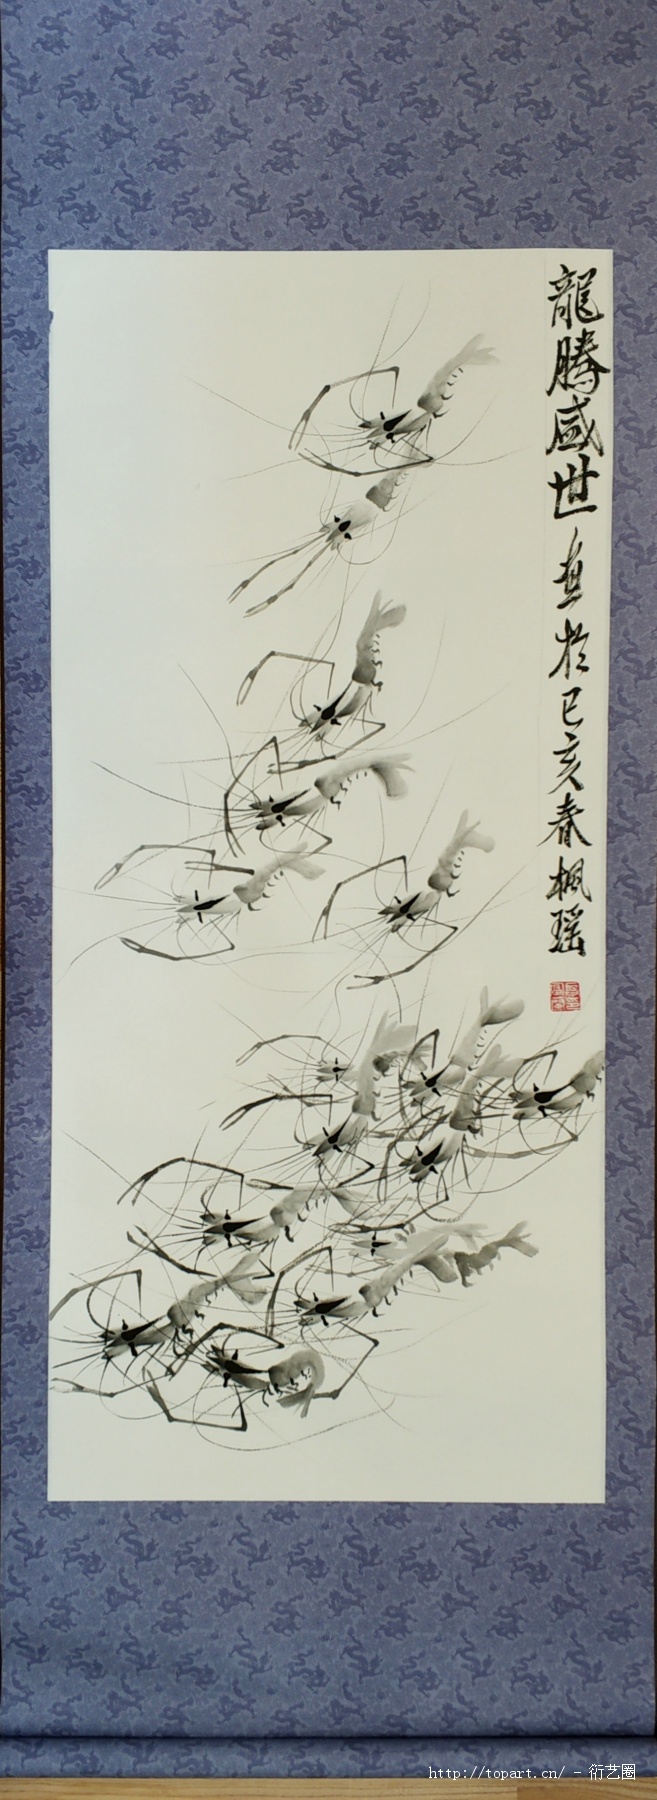 龍騰盛世 画於己亥春楓瑶
http://topart.cn/ - 衍艺圈